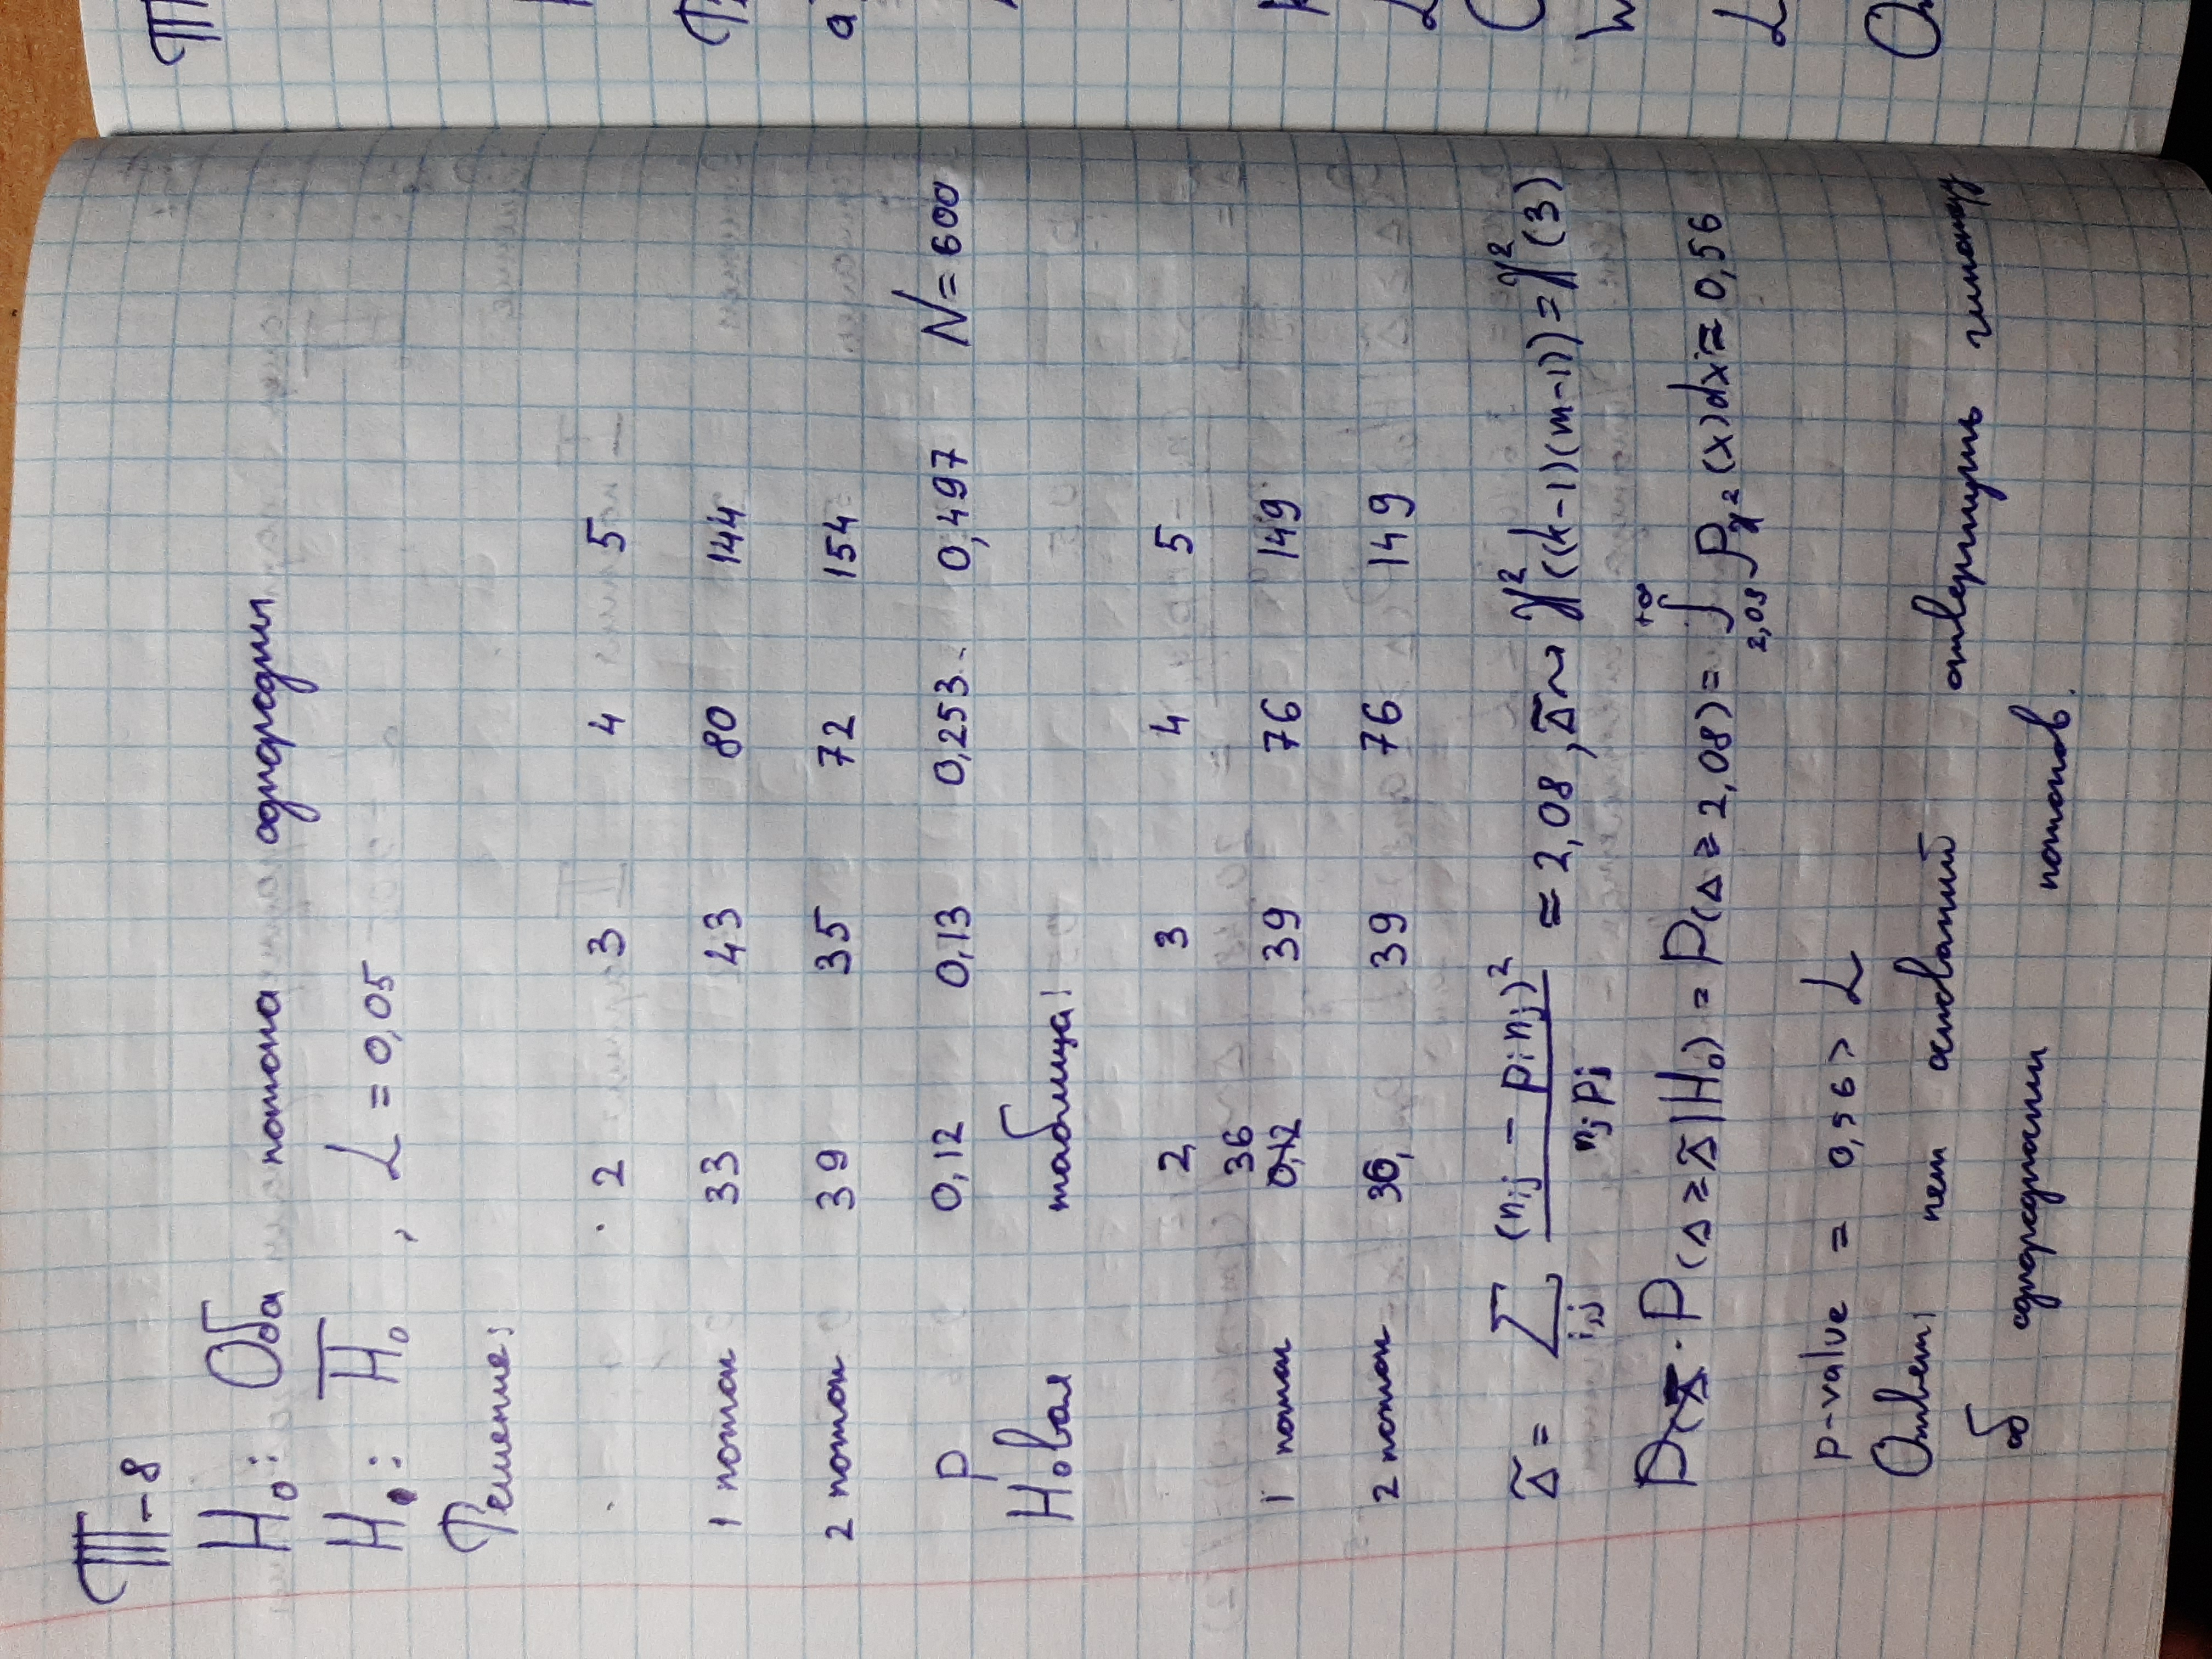 T-8
H₀: Оба потока однородны
H₁: H̅₀, α = 0,05
Решение:
2 3 4 5
1 поток 33 43 80 144
2 поток 39 35 72 154
p 0,12 0,13 0,253 0,497 N = 600
Новая таблица:
2 3 4 5
36
1 поток 0,12 39 76 149
2 поток 36, 39 76 149
Δ̃ = Σ i,j (nij - pi nj)² / nj pj ≈ 2,08, Δ̃ ~ χ²((k-1)(m-1)) = χ²(3)
P(Δ̃ · P(Δ ≥ Δ̃ | H₀) = P(Δ ≥ 2,08) = ∫ 2,08 +∞ pχ²(x)dx ≈ 0,56
p-value = 0,56 > α
Ответ: нет оснований отвергнуть гипотезу
об однородности потоков.